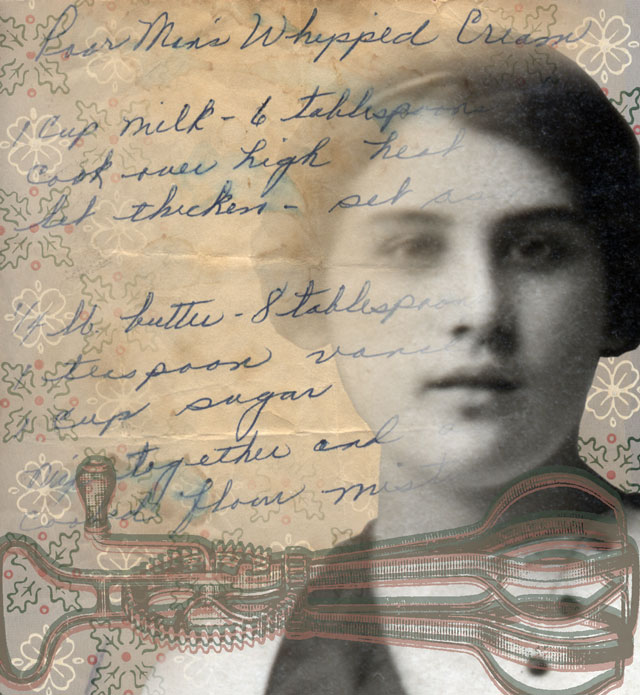 Poor Man's Whipped Cream
1 Cup milk - 6 tablespoons
cook over high heat
let thicken - set
1/4 lb. butter - 8 tablespoon
teaspoon
1 cup sugar
mix together and
flour mist